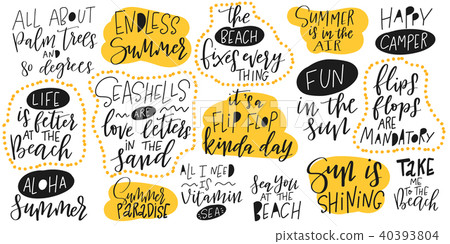 ALL ABOUT
Palm TREES
and
80 degrees
ENDLESS
Summer
the
BEACH
fixes every
THING
SUMMER
is in the
AIR
HAPPY
CAMPER
LIFE
is fetter
AT THE
Beach
SEASHELLS
ARE
love letters
IN THE
sand
it's a
FLIP FLOP
kinda day
FUN
in the
sun
flips
flops
ARE
MANDATORY
ALOHA
Summer
Summer
PARADISE
ALL I NEED
IS
Vitamin
SEA
Sea you
AT the
BEACH
Sun is
SHINING
TAKE
ME
TO THE
Beach
40393804